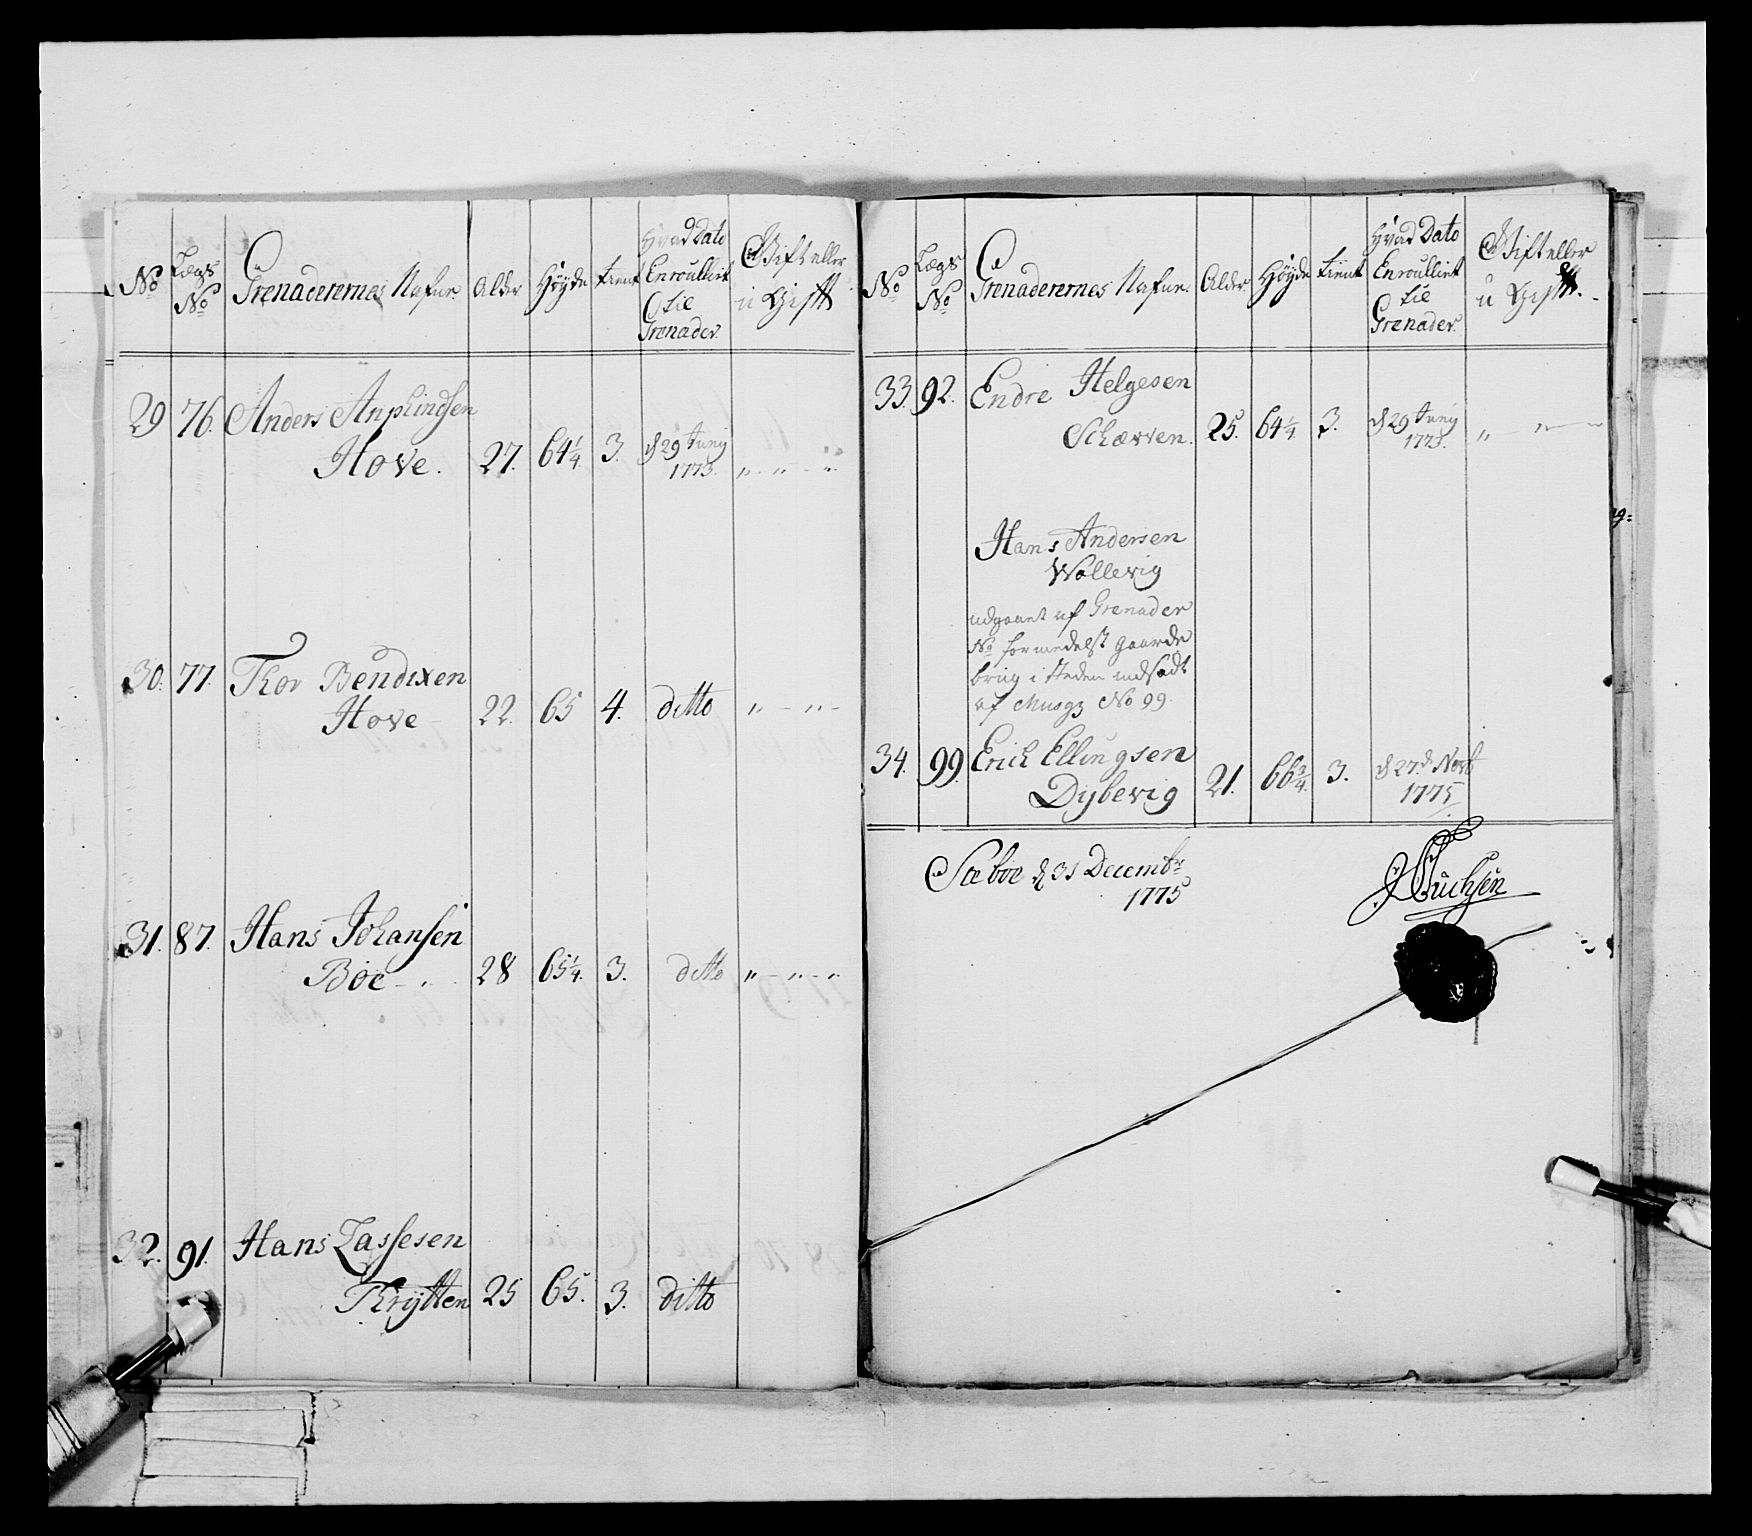 No
Lægs No
Grenaderernes Nafne.
Alder
Høyde
tient
Hvad Dato Enroullirt til Grenader.
Gift eller u Gift
29 76. Anders Anphindsen
Hove. 27. 64 1/4 3. d 29 Juny 1773. " - " - "
30. 77. Thor Bendixen
Hove - 22. 65 4. ditto " - " -
31. 87. Hans Johansen
Böe - . 28 65 1/4. 3. ditto " - " - "
32. 91. Hans Lassesen
Thrytten 25 65. 3. ditto
No
Lægs No
Grenaderernes Nafne.
Alder
Høyde
tient
Hvad Dato Enroullirt til Grenader.
Gift eller u Gift.
33. 92. Endre Helgesen
Schævven. 25. 64 1/4 3. d 29 Juny 1773. " - " -
Hans Andersen
Wollevig
udgaaet af Grenader
No formedelst gaarde
brug i steden indsadt
af Musqz No 99.
34. 99. Erich Ellingsen
Dybevig 21. 66 3/4. 3. d 27de Novb 1775
Sæböe d 31 Decembr
1775